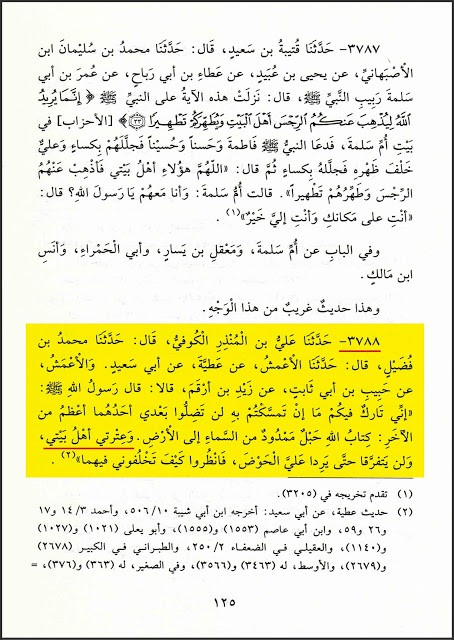 ٣٧٨٧- حَدَّثَنَا قُتيبةُ بن سَعيدٍ، قال: حَدَّثَنَا محمدُ بن سُليْمانَ ابن
الأَصْبَهانيِّ، عن يحيى بن عُبَيدٍ، عن عَطاءِ بن أبي رَباحٍ، عن عُمرَ بن أبي
سَلمةَ رَبيبِ النَّبيِّ ﷺ، قال: نَزلَتْ هذه الآيةُ على النبيِّ ﷺ ﴿إِنَّمَا يُرِيدُ
اللَّهُ لِيُذْهِبَ عَنكُمُ الرِّجْسَ أَهْلَ الْبَيْتِ وَيُطَهِّرَكُمْ تَطْهِيرًا ﴿٣٣﴾﴾ [الأحزاب] في
بَيْتِ أُمِّ سَلمةَ، فَدعَا النبيُّ ﷺ فَاطمةَ وحَسناً وحُسيْناً فَجلَّلَهُمْ بِكِساءٍ وعَليٌّ
خَلْفَ ظَهْرِهِ فَجلَّلهُ بكِساءٍ ثُمَّ قال: «اللّهُمَّ هؤلاءِ أهْلُ بَيْتي فَأذْهِبْ عَنْهُمُ
الرِّجْسَ وَطَهِّرْهُمْ تَطْهيراً». قالت أُمُّ سَلمةَ: وَأنا معَهُمْ يَا رَسولَ اللهِ؟ قال:
«أنْتِ على مَكانكِ وَأنْتِ إليَّ خَيْرٌ»(١) .
وفي البابِ عن أُمِّ سَلمةَ، وَمَعْقلِ بن يَسارٍ، وأبي الْحَمْراءِ، وَأنَسِ
ابن مَالكٍ.
وهذا حديثٌ غريبٌ من هذا الْوَجْهِ.
٣٧٨٨- حَدَّثَنَا عَليُّ بن الْمُنْذِرِ الْكُوفيُّ، قال: حَدَّثَنَا محمدُ بن
فُضَيْلٍ، قال: حَدَّثَنَا الأعْمشُ، عن عَطيَّةَ، عن أبي سَعيدٍ. وَالأعْمَشُ،
عن حَبيبِ بن أبي ثَابتٍ، عن زَيْدِ بن أرْقَمَ، قالا: قال رَسولُ اللهِ ﷺ:
«إنِّي تَاركٌ فيكُمْ مَا إنْ تَمسَّكْتُمْ بهِ لن تَضِلُّوا بَعْدي أحَدُهُما أعْظمُ من
الآخَرِ: كِتابُ اللهِ حَبْلٌ مَمْدُودٌ من السَّماءِ إلى الأرْضِ. وَعِتْرتي أهْلُ بَيْتي،
وَلن يَتفرَّقا حتَّى يَردا عَليَّ الْحَوْضَ، فَانْظُروا كَيْفَ تَخْلُفُوني فيهما»(٢) .
(١) تقدم تخريجه في (٣٢٠٥).
(٢) حديث عطية، عن أبي سعيد: أخرجه ابن أبي شيبة ٥٠٦/١٠، وأحمد ١٤/٣ و١٧
و٢٦ و٥٩، وابن أبي عاصم (١٥٥٣) و(١٥٥٥)، وأبو يعلى (١٠٢١) و(١٠٢٧)
و(١١٤٠)، والعقيلي في الضعفاء ٢٥٠/٢، والطبراني في الكبير (٢٦٧٨)
و(٢٦٧٩)، والأوسط، له (٣٤٦٣) و(٣٥٦٦)، وفي الصغير، له (٣٦٣) و(٣٧٦)، =
١٢٥